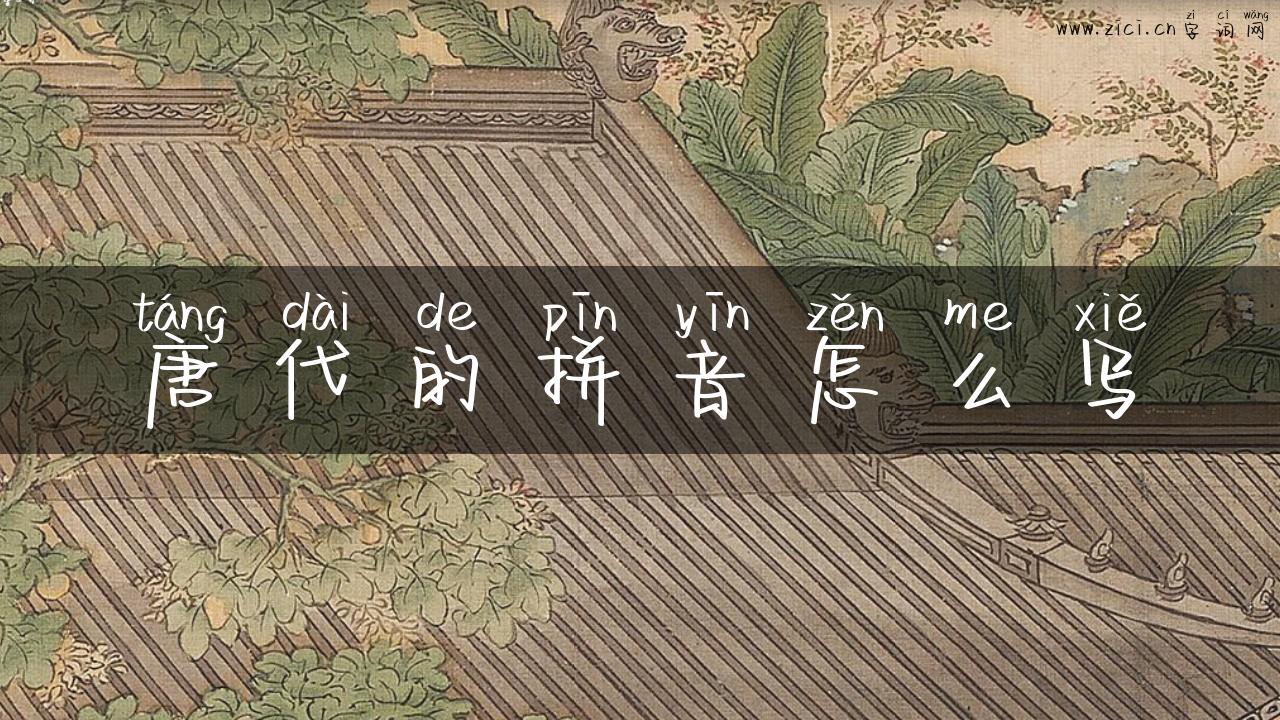 zì cí wǎng
www.zici.cn 字词网
táng dài de pīn yīn zěn me xiě
唐代的拼音怎么写